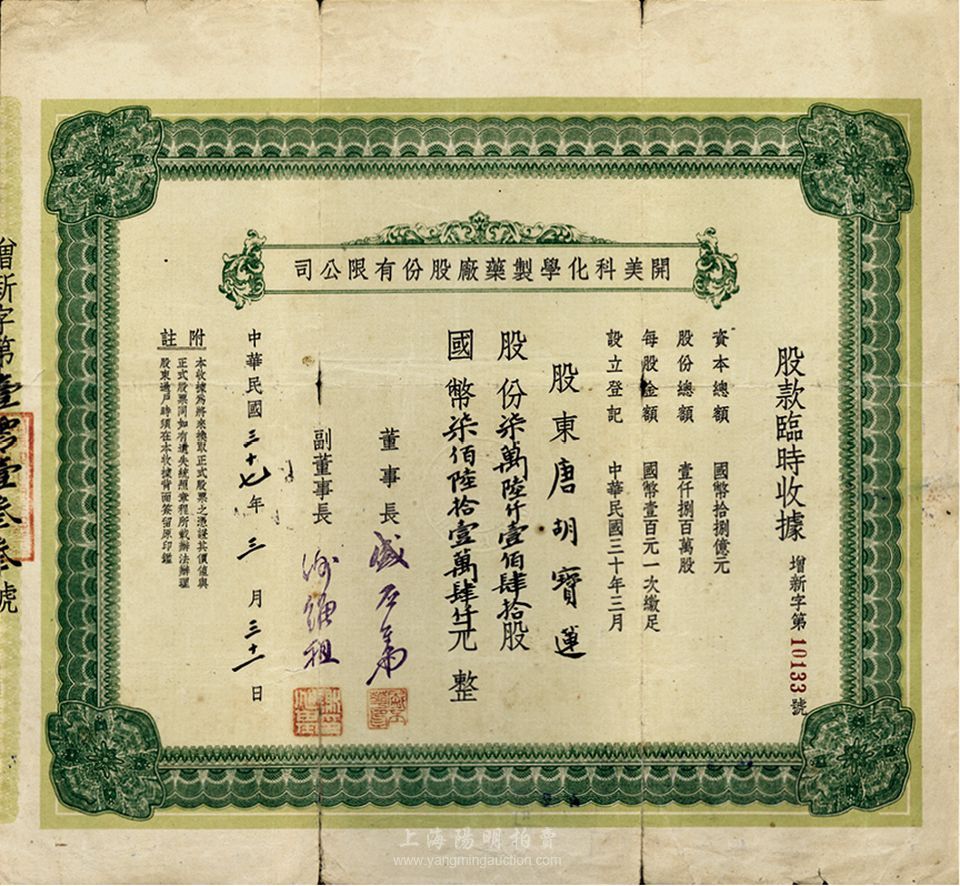 開美科化學製藥廠股份有限公司
股款臨時收據 增新字第10133號
資本總額 國幣拾捌億元
股份總額 壹仟捌百萬股
每股金額 國幣壹百元一次繳足
設立登記 中華民國三十年三月
股東唐胡寶蓮
股份柒萬陸仟壹佰肆拾股
國幣柒佰陸拾壹萬肆仟元整
董事長
副董事長
中華民國三十七年三月三十一日
附註
本收據為將來換取正式股票之憑證其價值與
正式股票同如有遺失統照章程所載辦法辦理
股東過戶時須在本收據背面簽留原印鑑
增新字第壹零壹叁叁號
上海陽明拍賣
www.yangmingauction.com